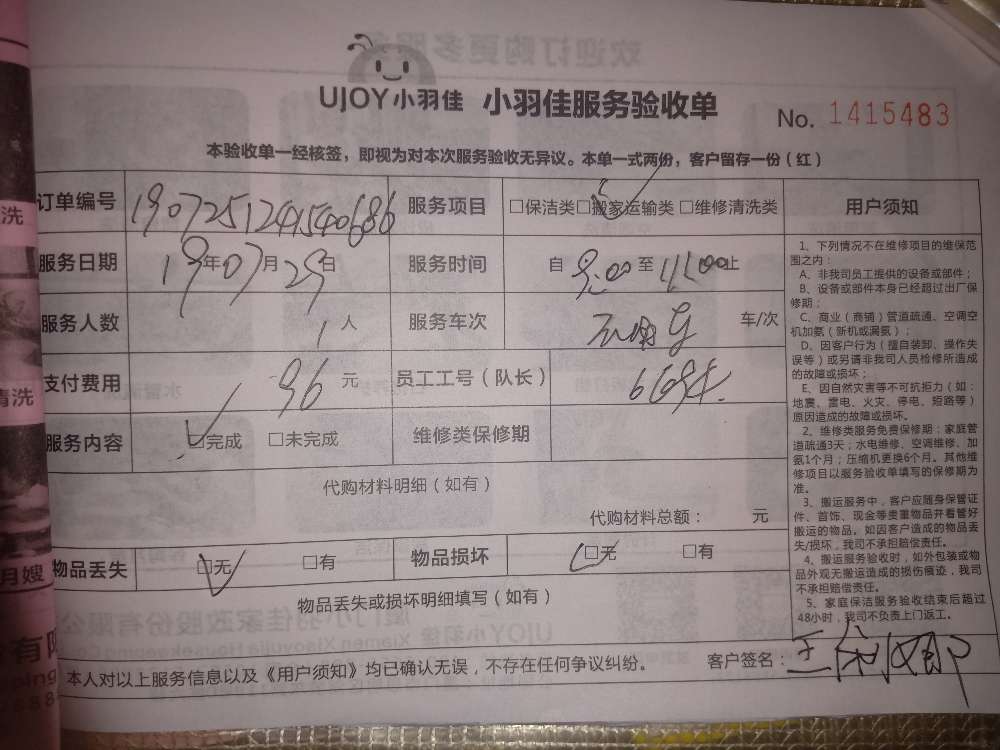 UJOY小羽佳 小羽佳服务验收单 No. 1415483
本验收单一经核签，即视为对本次服务验收无异议。本单一式两份，客户留存一份（红）
订单编号 1907251241540686 服务项目 □保洁类 □搬家运输类 □维修清洗类
服务日期 19年07月29日 服务时间 自9:00至11:00止
服务人数 1人 服务车次 车/次
支付费用 96元 员工工号（队长）
服务内容 □完成 □未完成 维修类保修期
代购材料明细（如有）
代购材料总额： 元
物品丢失 □无 □有 物品损坏 □无 □有
物品丢失或损坏明细填写（如有）
本人对以上服务信息以及《用户须知》均已确认无误，不存在任何争议纠纷。 客户签名：
用户须知
1、下列情况不在维修项目的维保范
围之内：
A、非我司员工提供的设备或部件；
B、设备或部件本身已经超过出厂保
修期；
C、商业（商铺）管道疏通、空调空
机加氨（新机或漏氨）；
D、因客户行为（擅自装卸、操作失
误等）或另请非我司人员检修所造成
的故障或损坏；
E、因自然灾害等不可抗拒力（如：
地震、雷电、火灾、停电、短路等）
原因造成的故障或损坏。
2、维修类服务免费保修期：家庭管
道疏通3天；水电维修、空调维修、加
氨1个月；压缩机更换6个月。其他维
修项目以服务验收单填写的保修期为
准。
3、搬运服务中，客户应随身保管证
件、首饰、现金等贵重物品并看管好
搬运的物品。如因客户造成的物品丢
失/损坏，我司不承担赔偿责任。
4、搬运服务验收时，如外包装或物
品外观无搬运造成的损伤痕迹，我司
不承担赔偿责任。
5、家庭保洁服务验收结束后超过
48小时，我司不负责上门返工。
洗
清洗
月嫂